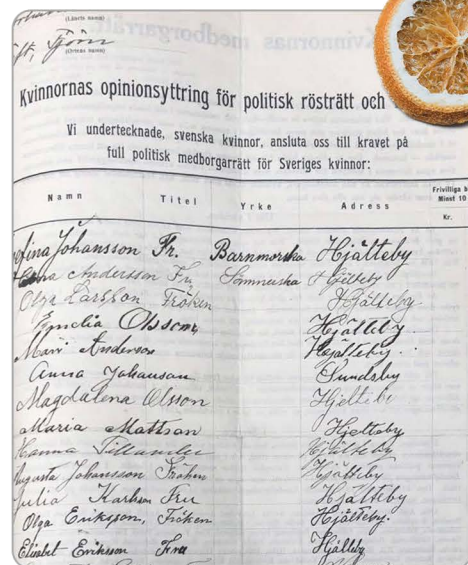 (Länets namn)
Tjörn
(Ortens namn)
Kvinnornas medborgarrätt
Kvinnornas opinionsyttring för politisk rösträtt och
Vi undertecknade, svenska kvinnor, ansluta oss till kravet på
full politisk medborgarrätt för Sveriges kvinnor:
Namn Titel Yrke Adress Frivilliga
Minst 10
Kr.
Johansson Fr. Barnmorska Hjälteby
Andersson Fru Hjelteby
Olga Larsson Fröken Hjälteby.
Emelia Olsson, Hjälteby.
Mari Anderson Hjälteby.
Anna Johanson Sundsby
Magdalena Olsson Hjelteby
Maria Mattson Hjelteby
Hanna Hjälteby
Augusta Johansson Fröken Hjälteby
Julia Karlsson Fru Hjälteby
Olga Eriksson, Fröken Hjälteby.
Elisabet Eriksson Fru Hjälteby